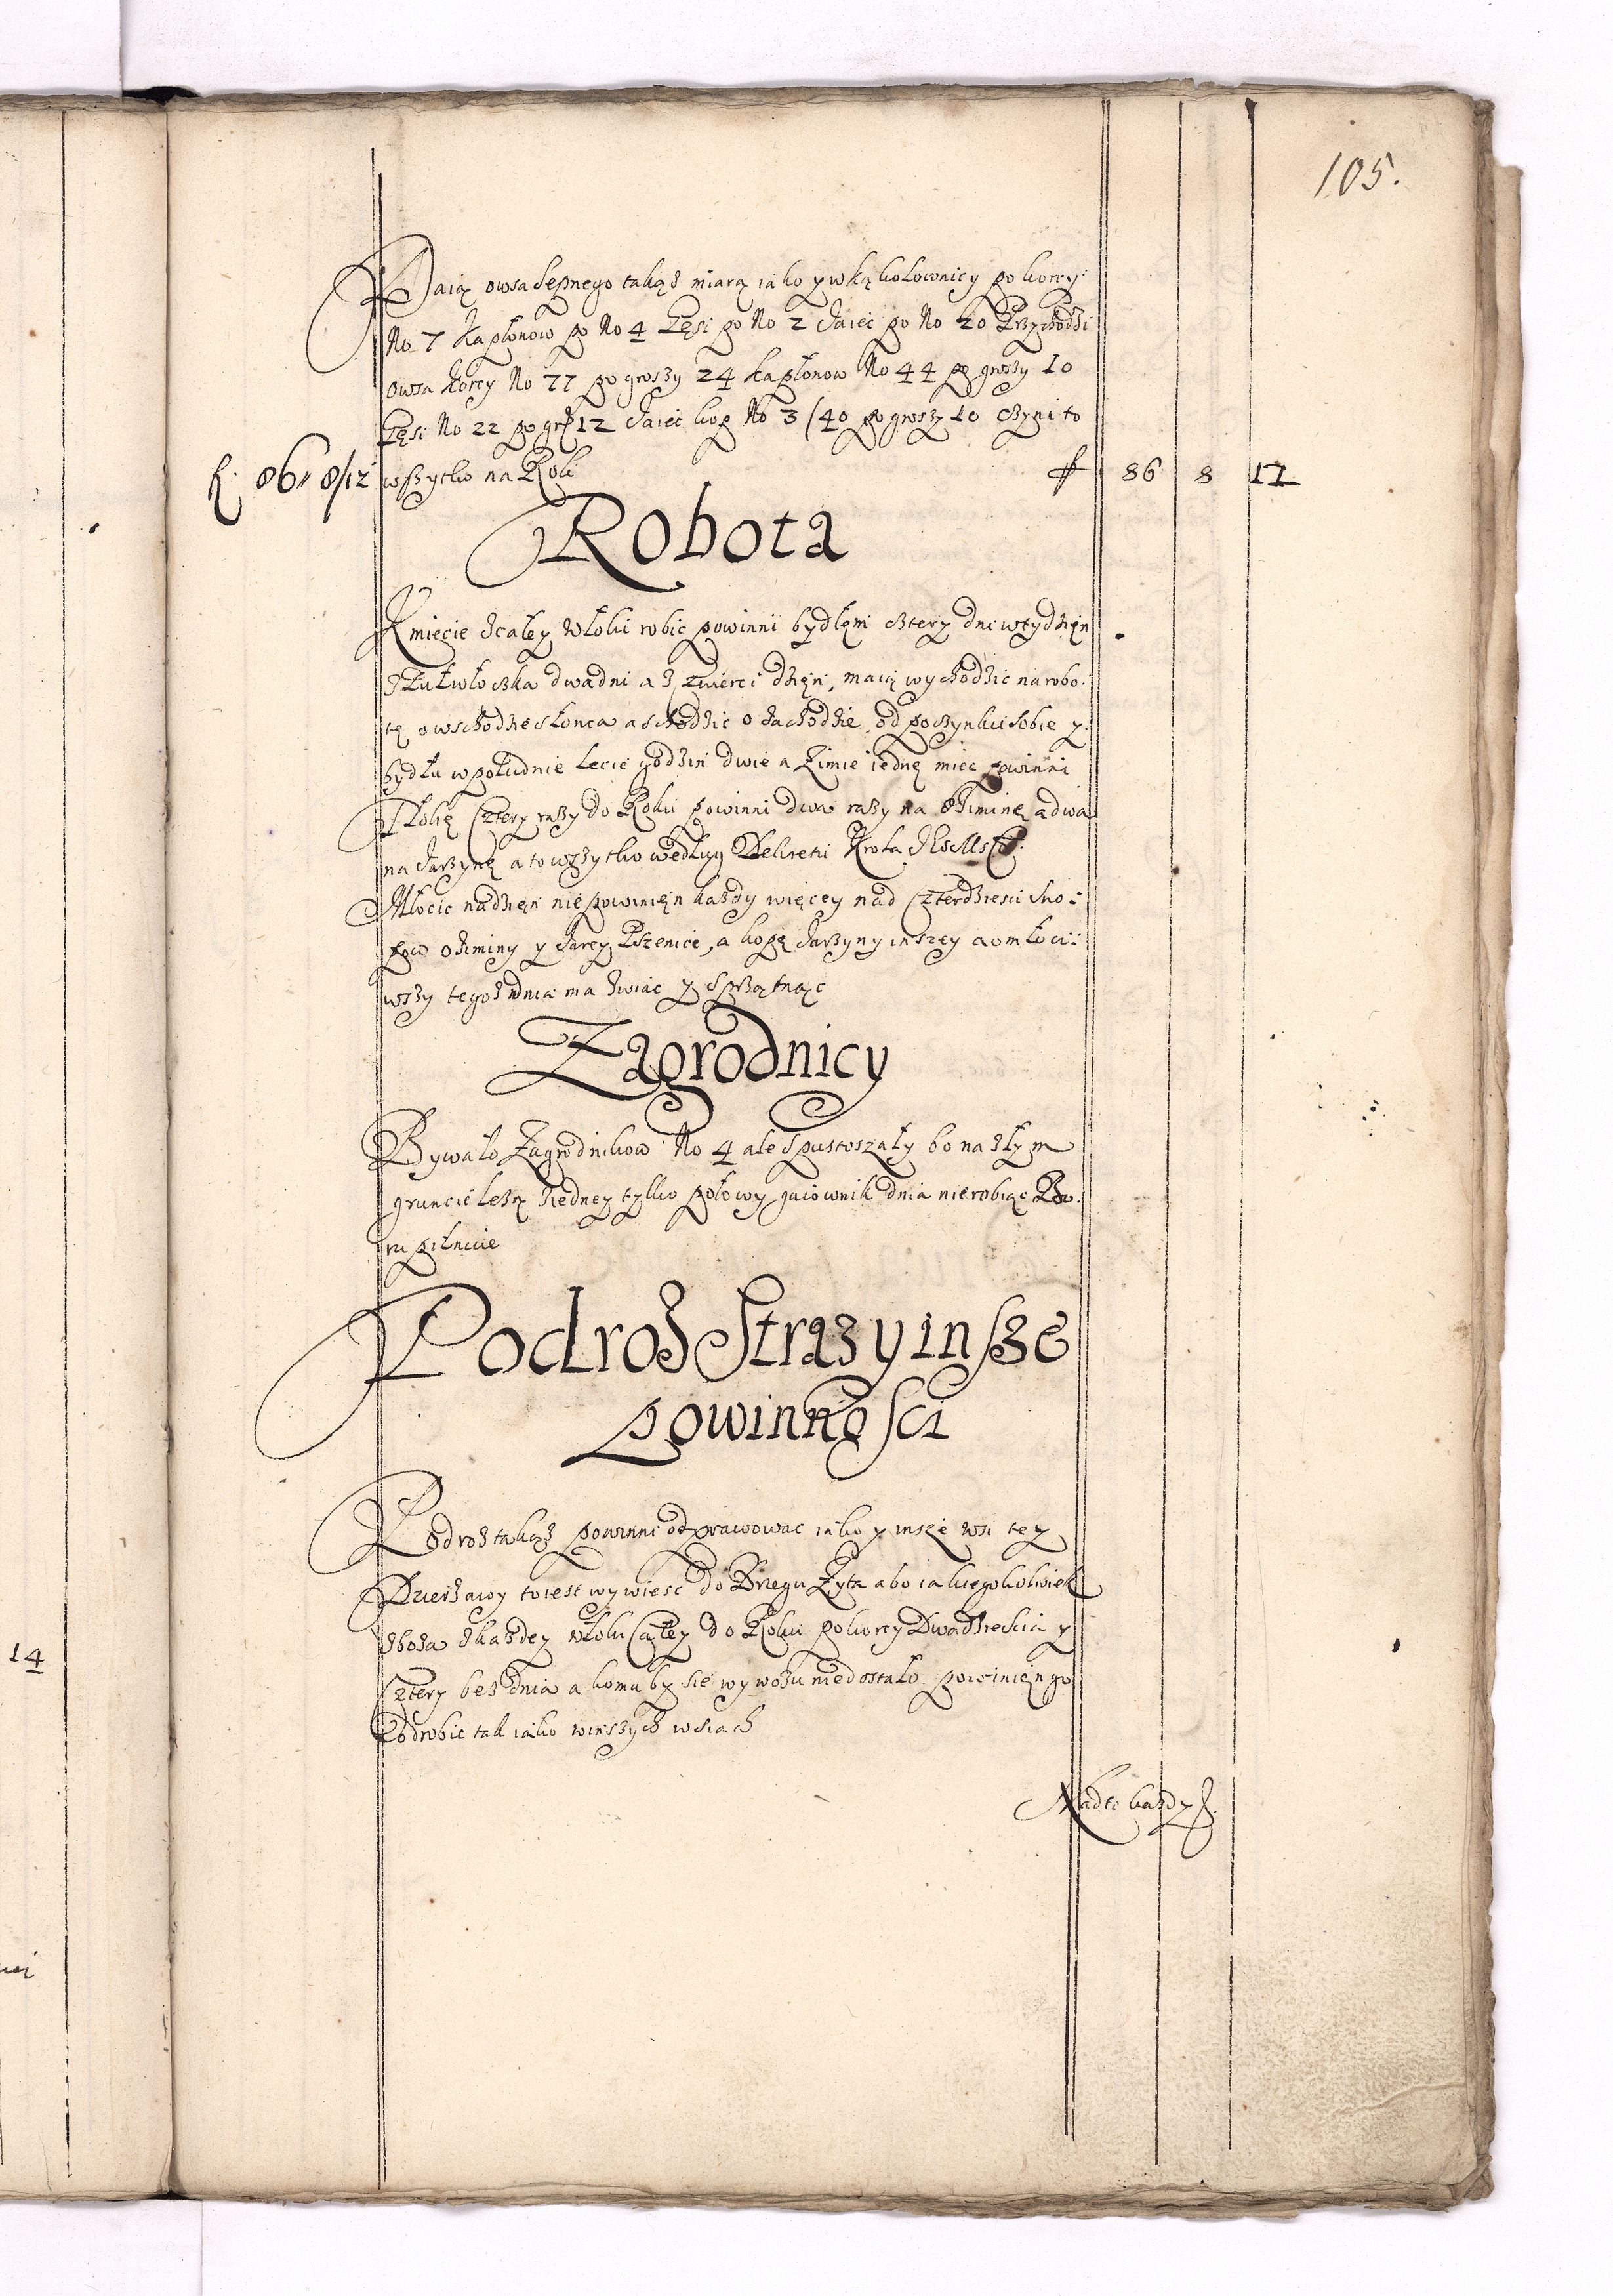 105.
Daią owsa sepnego takąż miarą iako y w Kąkolownicy po korcy
No 7 Kapłonow po No 4 Gęsi po No 2 Jaiec po No 20 Przychodzi
owsa korcy No 77 po groszy 24 Kapłonow No 44 po groszy 10
Gęsi No 22 po gr 12 Jaiec kop No 3/40 po groszy 10 czyni to
f. 86 8/12 wszytko na Rok f 86 8 12
Robota
Kmiecie z całey Włoki robic powinni bydłęm cztery dni w tydzięn
z Pułwłoczka dwa dni a z czwierci dzięn, maią wychodzic na robo:
tę o wschodzie słonca a schodzic o zachodzie, odpoczynku sobie y
bydłu w południe lecie godzin dwie a Zimie iednę miec powinni
Tłokę Cztery razy do Roku powinni dwa razy na Oziminę a dwa
na Jarzynę a to wszytko według Dekretu Krola JeoMsci.
Młocic na dzięn nie powinięn każdy więcey nad Czterdziesci sno:
pow oziminy y Jarey Pszenice, a kopę Jarzyny inszey a omłoci:
wszy tegoż dnia ma zwiac y sprzątnąc
Zagrodnicy
Bywało Zagrodnikow No 4 ale spustoszały bo na złym
gruncie leżą z iedney tylko połowy gaiownik dnia nie robiąc Bo:
ru pilnuie
Podroż Straż y insze
powinnosci
Podroż takąż powinni odprawowac iako y insze wsi tey
Dzierżawy to iest wywiesc do Brzegu Żyta abo iakiegokolwiek
zboża z każdey włoki Całey do Roku po korcy Dwadziescia y
Cztery bez dnia a komu by się wywozu niedostało powinięn go
Odrobic tak iako w inszych wsiach
Nad to każdy
14